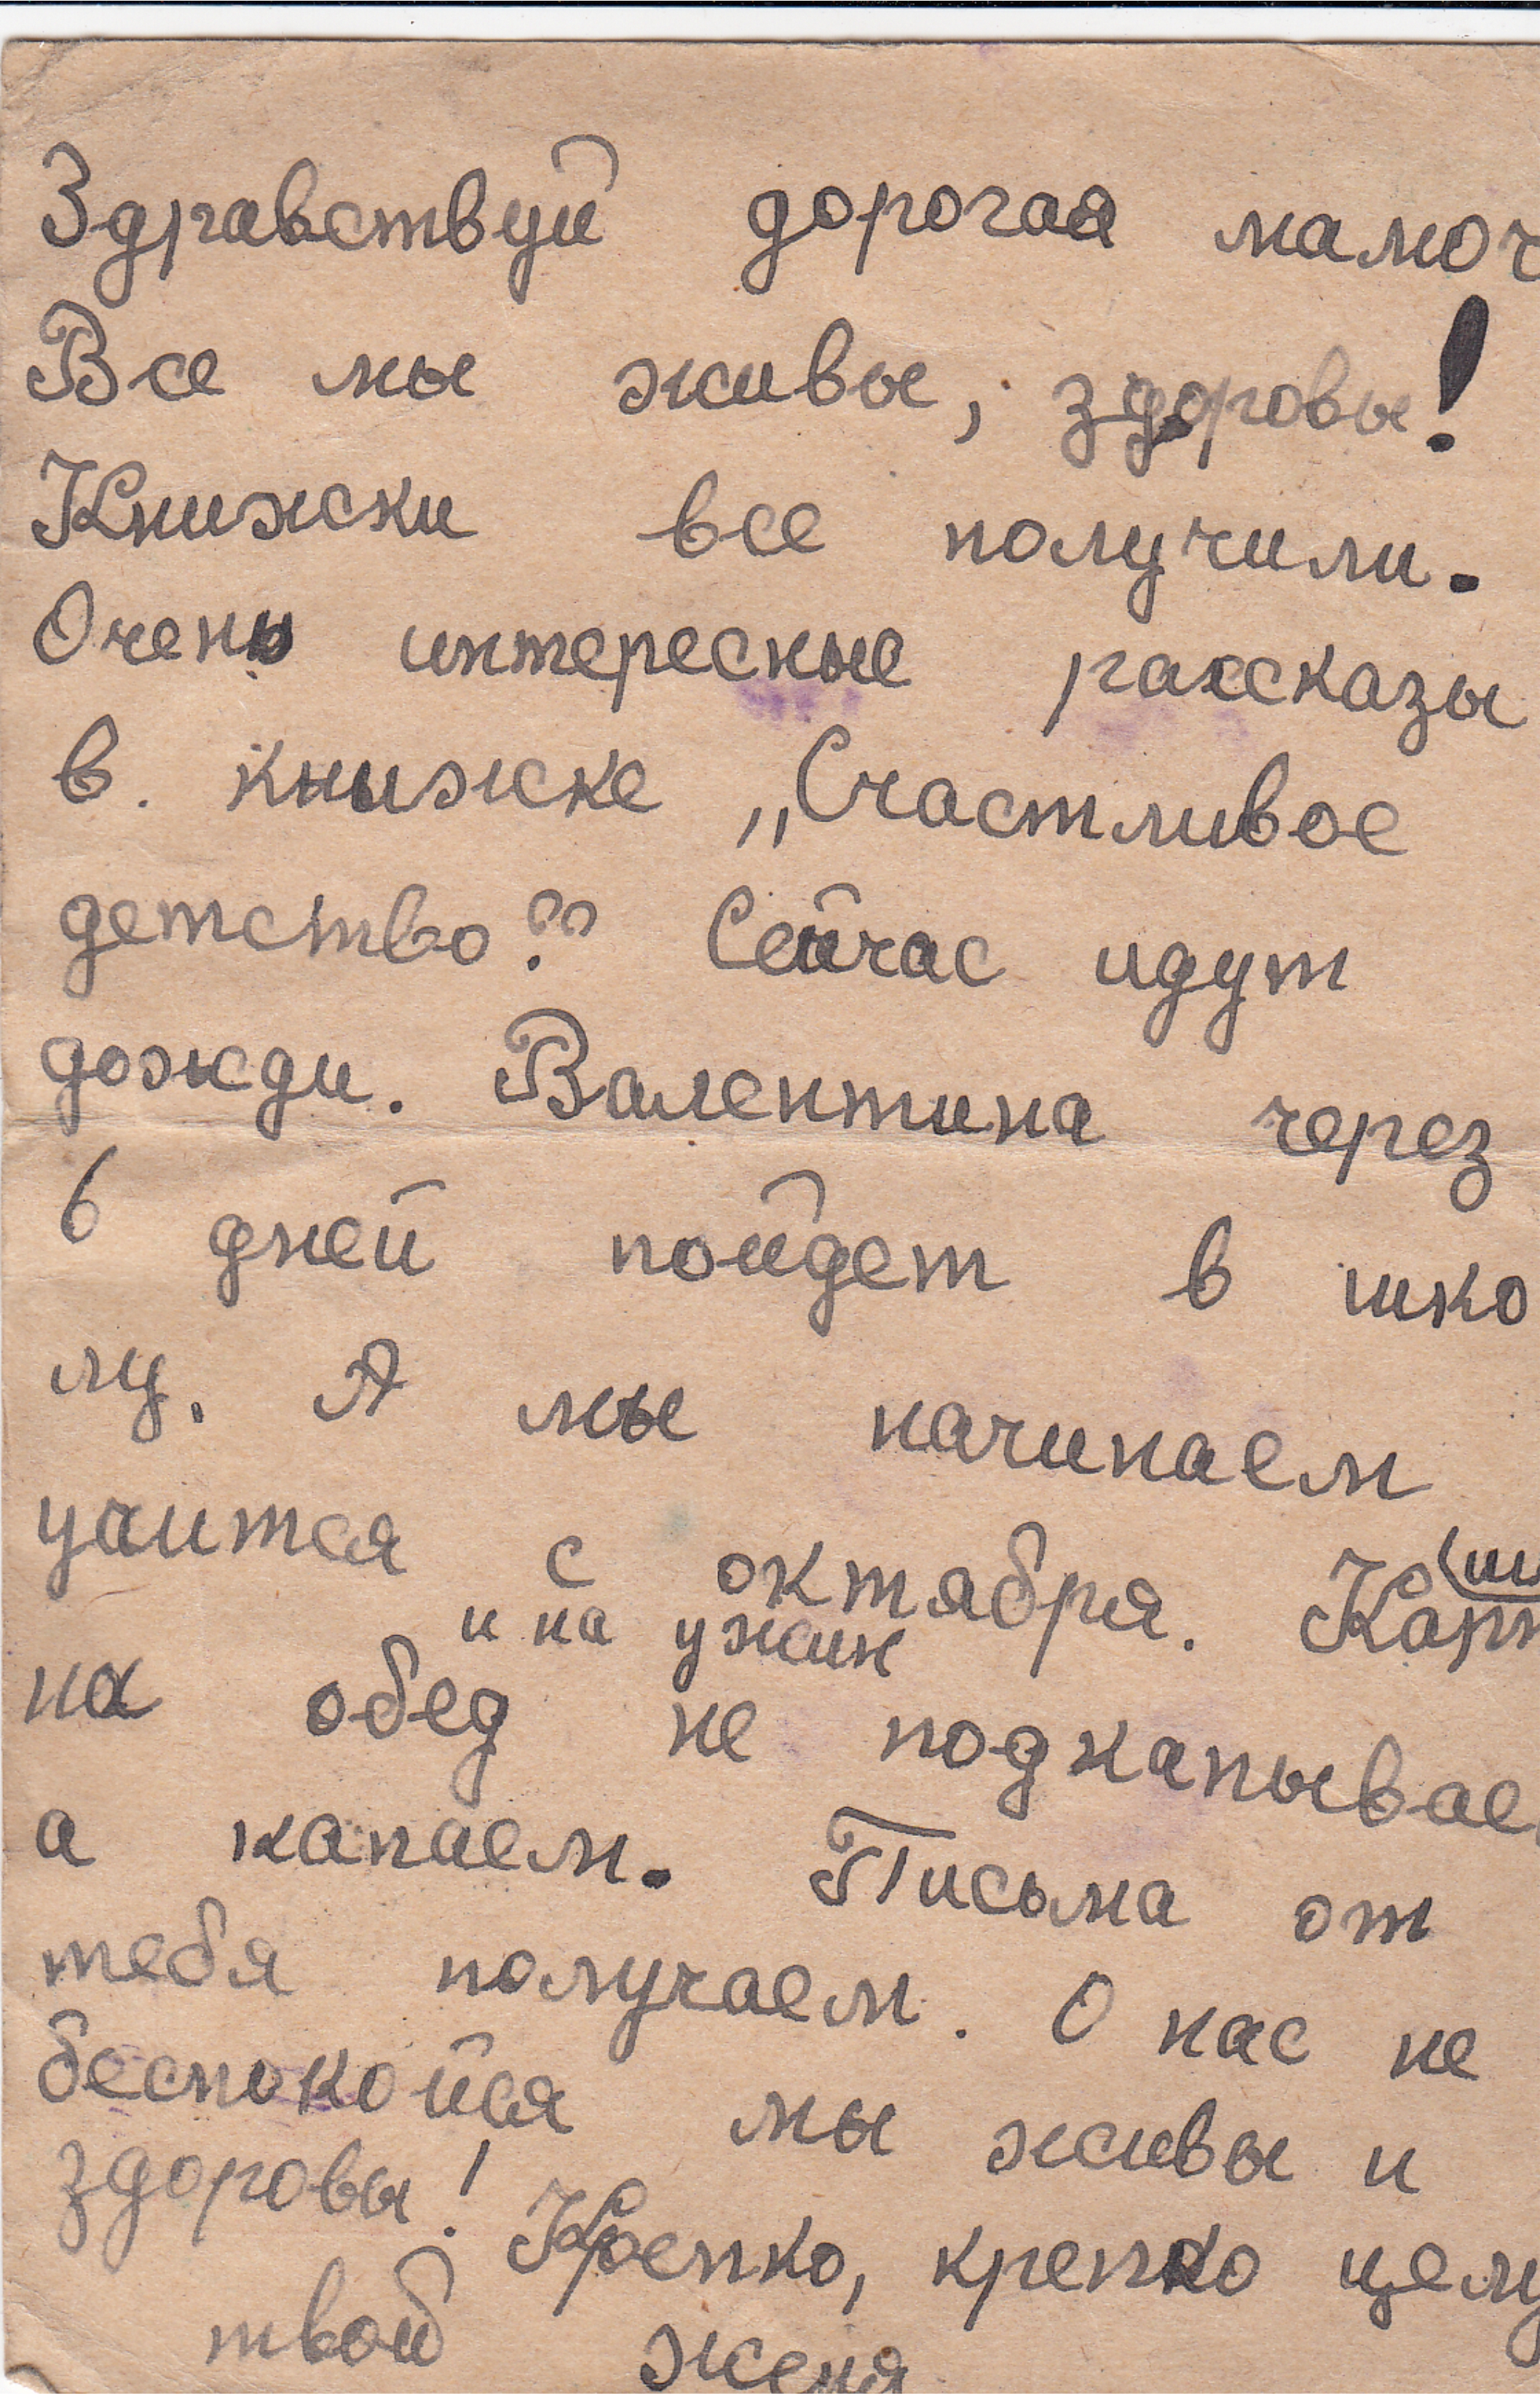 Здравствуй дорогая мамоч
Все мы живы, здоровы!
Книжки все получили.
Очень интересные рассказы
в. книжке „Счастливое
детство?" Сейчас идут
дожди. Валентина через
6 дней пойдет в шко
лу. А мы начинаем
учится с октября.
и на ужин
на обед не подкапывае
а капаем. Письма от
тебя получаем. О нас не
беспокойся мы живы и
здоровы! Крепко, крепко целу
твой Женя